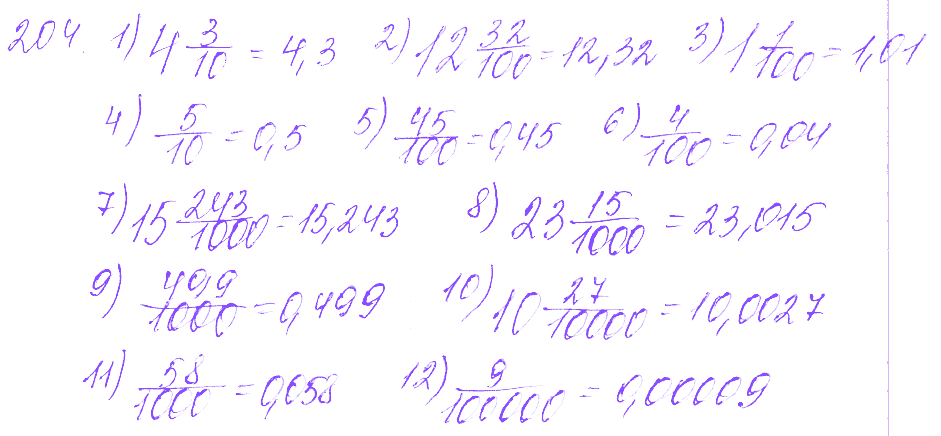 204. 1) 4 3/10 = 4,3 2) 12 32/100 = 12,32 3) 1 1/100 = 1,01
4) 5/10 = 0,5 5) 45/100 = 0,45 6) 4/100 = 0,04
7) 15 243/1000 = 15,243 8) 23 15/1000 = 23,015
9) 499/1000 = 0,499 10) 10 27/10000 = 10,0027
11) 58/1000 = 0,058 12) 9/100000 = 0,00009